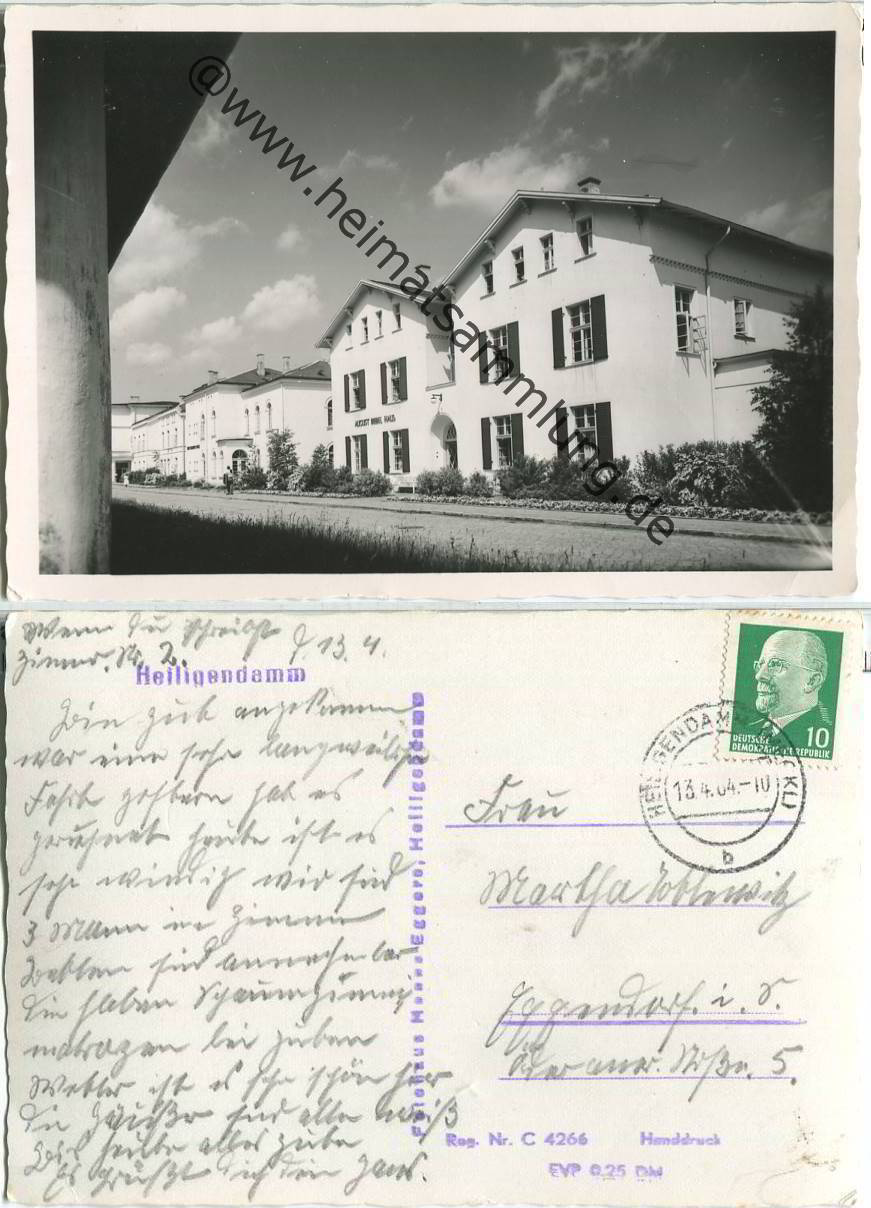 @www.heimatsammlung.de
AUGUST BEBEL HAUS
Wenn Du schreibst
Zimmer. Nr. 2.
d 13. 4.
Heiligendamm
Bin gut angekommen
war eine sehr langweilige
Fahrt gestern hat es
geregnet heute ist es
sehr windig wir sind
3 Mann im Zimmer
Betten sind annehmbar
die haben Schaumgummi
matrazen bei guten
Wetter ist es sehr schön hier
die Häußer sind alle weiß
Bis heute alles gute
Es grüßt dich dein Hans.
Fotohaus Eggers, Heiligendamm
DEUTSCHE
DEMOKRATISCHE REPUBLIK
10
HEILIGENDAMM
13.4.64.-10
b
Frau
Martha
Eppendorf. i. S.
Oederaner. Straße. 5.
Reg. Nr. C 4266 Handdruck
EVP 0.25 DM